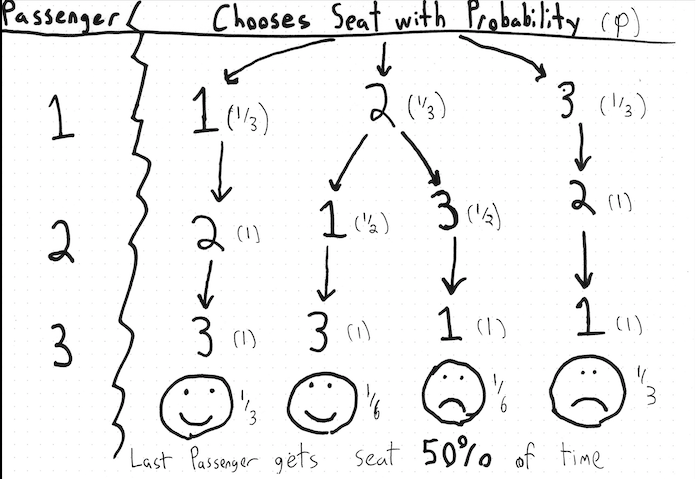 Passenger Chooses Seat with Probability (p)
1 1 (1/3) 2 (1/3) 3 (1/3)
2 2 (1) 1 (1/2) 3 (1/2) 2 (1)
3 3 (1) 3 (1) 1 (1) 1 (1)
1/3 1/6 1/6 1/3
Last Passenger gets seat 50% of time